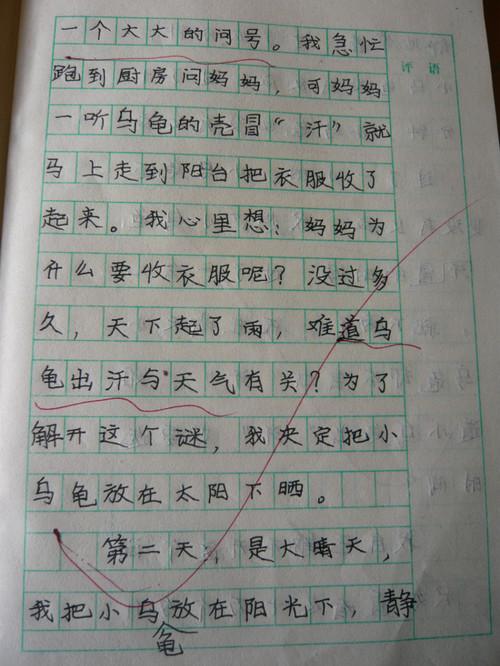 一个大大的问号。我急忙
评语
跑到厨房问妈妈，可妈妈
一听乌龟的壳冒“汗”就
马上走到阳台把衣服收了
起来。我心里想：妈妈为
什么要收衣服呢？没过多
久，天下起了雨，难道乌
龟出汗与天气有关？为了
解开这个谜，我决定把小
乌龟放在太阳下晒。
第二天，是大晴天，
我把小乌放在阳光下，静
龟